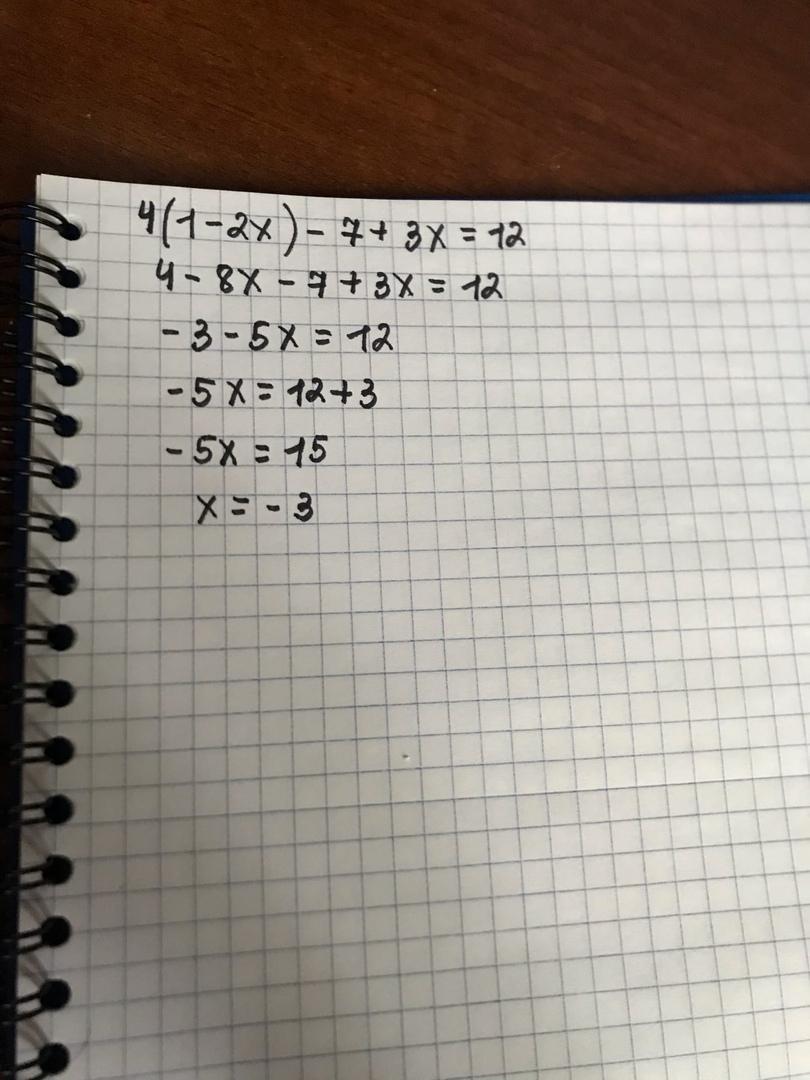 4(1-2x)-7+3x=12
4-8x-7+3x=12
-3-5x=12
-5x=12+3
-5x=15
x=-3